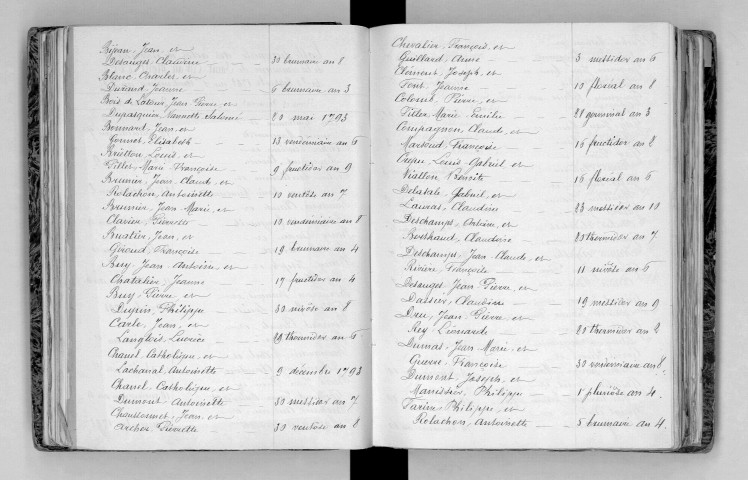 Bijeau, Jean, et
Desanges, Claudine 30 brumaire an 8
Blanc, Charles, et
Durand, Jeanne 6 brumaire an 3
Bois de Latour, Jean Pierre, et
Dupasquier, Jeannette Salomé 20 mai 1793
Bonnard, Jean, et
Gonnet, Elisabeth 13 vendémiaire an 6
Bretton, Louis, et
Tillet, Marie Françoise 9 fructidor an 9
Brunier, Jean Claude, et
Rolachon, Antoinette 10 ventôse an 7
Brunier, Jean Marie, et
Clavier, Pierrette 10 vendémiaire an 8
Bruatier, Jean, et
Giroud, Françoise 18 brumaire an 4
Buy, Jean Antoine, et
Chatatier, Jeanne 17 fructidor an 4
Buy, Pierre, et
Dupin, Philippe 30 nivôse an 8
Carle, Jean, et
Langlois, Ludvice 29 thermidor an 6
Chanel, Catholique, et
Lachanal, Antoinette 9 décembre 1793
Chanel, Catholique, et
Dumont, Antoinette 30 messidor an 7
Chaussonnet, Jean, et
Archer, Pierrette 30 ventôse an 8
Chevalier, François, et
Guillard, Anne 3 messidor an 6
Clément, Joseph, et
Font, Jeanne 10 floréal an 8
Colomb, Pierre, et
Tillet, Marie Emilie 28 germinal an 3
Compagnon, Claude, et
Marboud, Françoise 16 fructidor an 2
Louis Gabriel, et
Vialton, Benoite 16 floréal an 6
Delatale, Gabriel, et
Lauras, Claudine 23 messidor an 10
Deschamps, Antoine, et
Berthaud, Claudine 29 thermidor an 7
Deschamps, Jean Claude, et
Rivière, Françoise 11 nivôse an 6
Desanges, Jean Pierre, et
Dassier, Claudine 19 messidor an 9
Dru, Jean Pierre, et
Rey, Léonarde 20 thermidor an 2
Dumas, Jean Marie, et
Guesse, Françoise 30 vendémiaire an 8
Dumont, Joseph, et
Manissier, Philippe 1er pluviôse an 4
Farin, Philippe, et
Rolachon, Antoinette 5 brumaire an 4